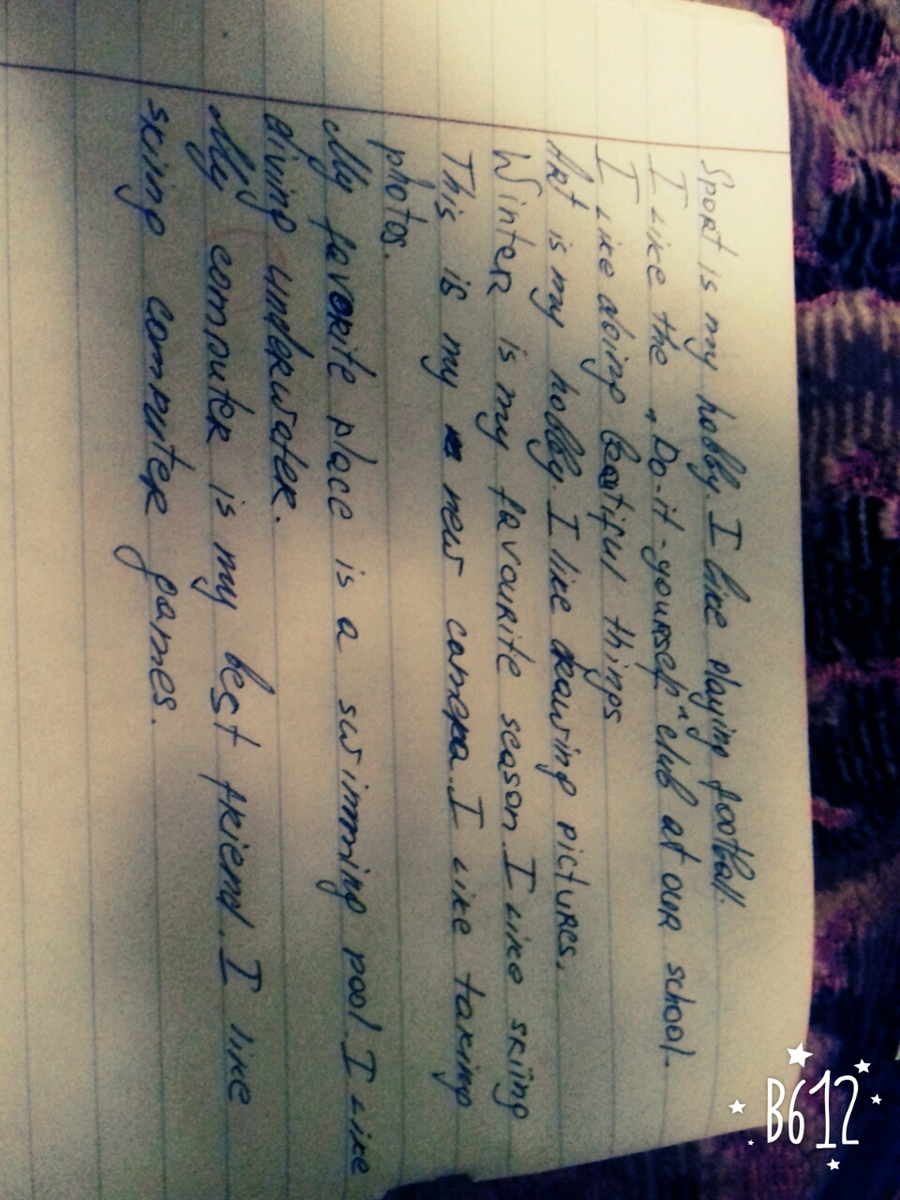 Sport is my hobby. I like playing football.
I like the "Do-it-yourself" club at our school.
I like doing beatiful things
Art is my hobby. I like drawing pictures.
Winter is my favourite season. I like skiing
This is my new camera. I like taking
photos.
My favorite place is a swimming pool. I like
diving underwater.
My computer is my best friend. I like
skiing computer games.
B612